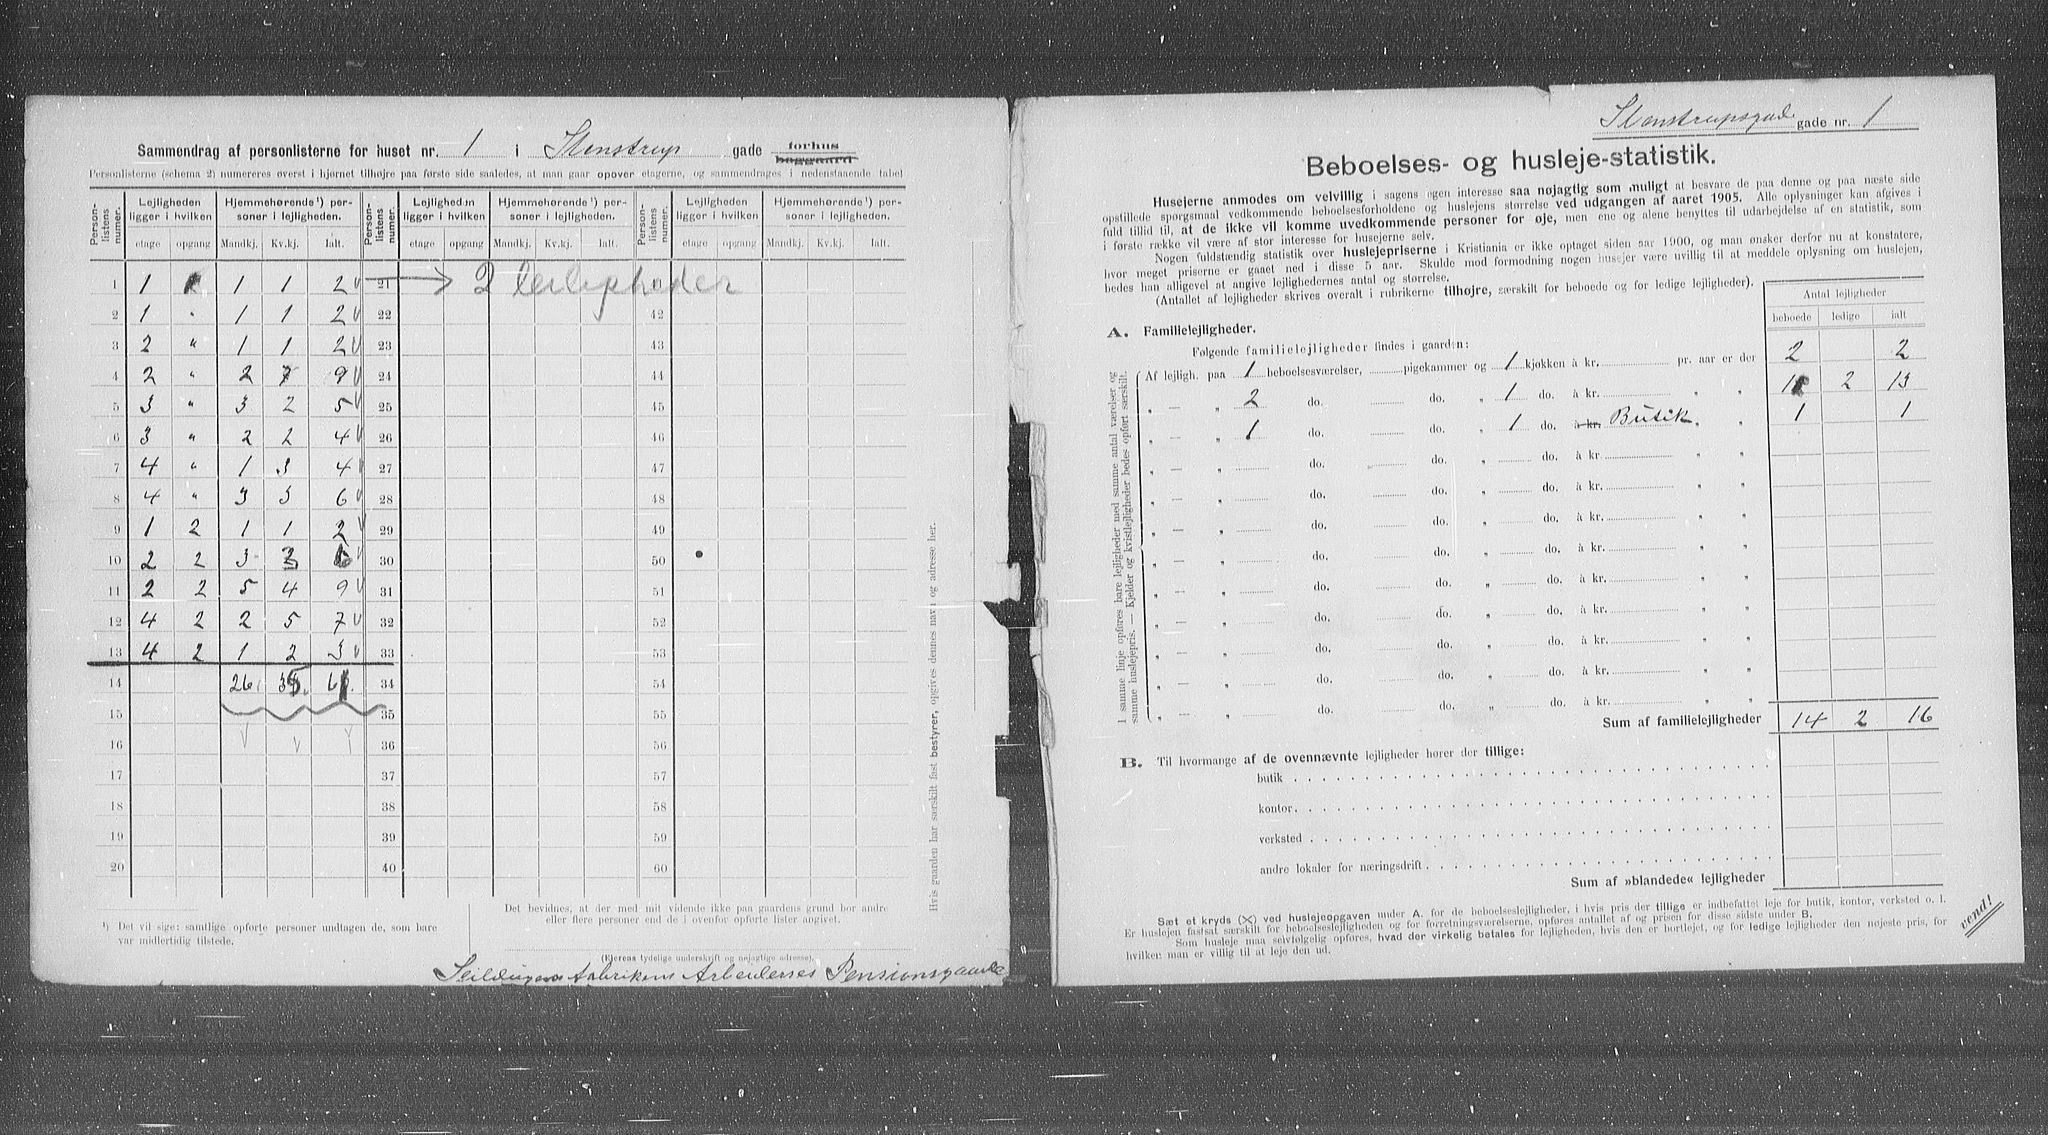 Sammendrag af personlisterne for huset nr. 1 i Stenstrup gade forhus baggaard
Personlisterne (schema 2) numereres øverst i hjørnet tilhøjre paa første side saaledes, at man gaar opover etagerne, og sammendrages i nedenstaaende tabel
Person-listens nummer. Lejligheden ligger i hvilken Hjemmehørende¹) personer i lejligheden. Person-listens nummer. Lejligheden ligger i hvilken Hjemmehørende¹) personer i lejligheden. Person-listens nummer. Lejligheden ligger i hvilken Hjemmehørende¹) personer i lejligheden.
etage opgang Mandkj. Kv.kj. Ialt. etage opgang Mandkj. Kv.kj. Ialt. etage opgang Mandkj. Kv.kj. Ialt.
1 1 1 1 2 21 2 leiligheder
2 1 " 1 1 2 22 42
3 2 " 1 1 2 23 43
4 2 " 2 7 9 24 44
5 3 " 3 2 5 25 45
6 3 " 2 2 4 26 46
7 4 " 1 3 4 27 47
8 4 " 3 3 6 28 48
9 1 2 1 1 2 29 49
10 2 2 3 3 6 30 50
11 2 2 5 4 9 31 51
12 4 2 2 5 7 32 52
13 4 2 1 2 3 33 53
14 26 35 61 34 54
15 35 55
16 36 56
17 37 57
18 38 58
19 39 59
20 40 60
¹) Det vil sige: samtlige opførte personer undtagen de, som bare var midlertidig tilstede.
Det bevidnes, at der med mit vidende ikke paa gaardens grund bor andre eller flere personer end de i ovenfor opførte lister angivet.
(Ejerens tydelige underskrift og nøjagtige adresse).
Seildugsfabrikens Arbeideres Pensionsgaarde
Hvis gaarden har særskilt fast bestyrer, opgives dennes navn og adresse her.
Stenstrupsgade gade nr. 1
Beboelses- og husleje-statistik.
Husejerne anmodes om velvillig i sagens egen interesse saa nøjagtig som muligt at besvare de paa denne og paa næste side
opstillede spørgsmaal vedkommende beboelsesforholdene og huslejens størrelse ved udgangen af aaret 1905. Alle oplysninger kan afgives i
fuld tillid til, at de ikke vil komme uvedkommende personer for øje, men ene og alene benyttes til udarbejdelse af en statistik, som
i første række vil være af stor interesse for husejerne selv.
Nogen fuldstændig statistik over huslejepriserne i Kristiania er ikke optaget siden aar 1900, og man ønsker derfor nu at konstatere,
hvor meget priserne er gaaet ned i disse 5 aar. Skulde mod formodning nogen husejer være uvillig til at meddele oplysning om huslejen,
bedes han alligevel at angive lejlighedernes antal og størrelse.
(Antallet af lejligheder skrives overalt i rubrikerne tilhøjre, særskilt for beboede og for ledige lejligheder).
Antal lejligheder
beboede ledige ialt
A. Familielejligheder.
Følgende familielejligheder findes i gaarden:
Af lejligh. paa 1 beboelsesværelser, pigekammer og 1 kjøkken à kr. pr. aar er der 2 2
" — " 2 do. do. " 1 do. à kr. " " 11 2 13
" — " 1 do. do. " 1 do. à kr. Butik " " 1 1
" — " do. do. " do. à kr. " "
" — " do. do. " do. à kr. " "
" — " do. do. " do. à kr. " "
" — " do. do. " do. à kr. " "
" — " do. do. " do. à kr. " "
" — " do. do. " do. à kr. " "
" — " do. do. " do. à kr. " "
" — " do. do. " do. à kr. " "
" — " do. do. " do. à kr. " "
I samme linje opføres bare lejligheder med samme antal værelser og samme huslejepris. — Kjelder og kvistlejligheder bedes opført særskilt.
Sum af familielejligheder 14 2 16
B. Til hvormange af de ovennævnte lejligheder hører der tillige:
butik
kontor
verksted
andre lokaler for næringsdrift
Sum af »blandede« lejligheder
Sæt et kryds (X) ved huslejeopgaven under A. for de beboelseslejligheder, i hvis pris der tillige er indbefattet leje for butik, kontor, verksted o. l.
Er huslejen fastsat særskilt for beboelseslejligheden og for forretningsværelserne, opføres antallet af og prisen for disse sidste under B.
Som husleje maa selvfølgelig opføres, hvad der virkelig betales for lejligheden, hvis den er bortlejet, og for ledige lejligheder den nøjeste pris, for
hvilken man er villig til at leje den ud.
vend!